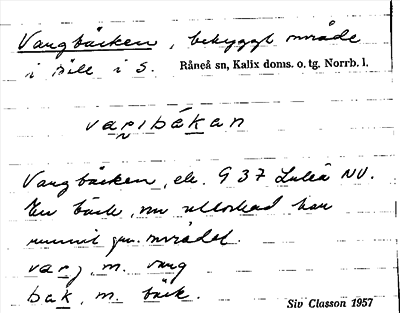 Vargbäcken, bebyggt område
i Böle i S. Råneå sn, Kalix doms. o. tg. Norrb. l.
varıbákan
Vargbäcken, ek. 937 Luleå NV.
En bäck, nu uttorkad har
runnit gm. området.
varj, m. varg
bak, m. bäck.
Siv Classon 1957